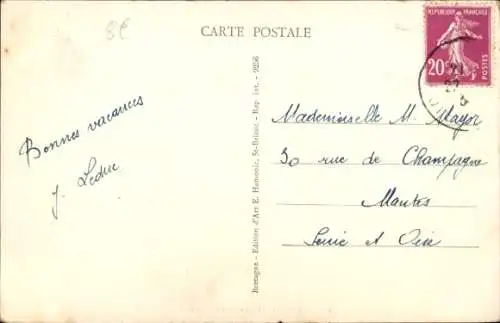 8€
CARTE POSTALE
RÉPUBLIQUE FRANÇAISE
20c
POSTES
Bonnes vacances
J. Leduc
Bretagne - Edition d'Art E. Hamonic, St-Brieuc - Rep. int. - 9256
Mademoiselle M. Mayor
30 rue de Champagne
Mantes
Seine et Oise